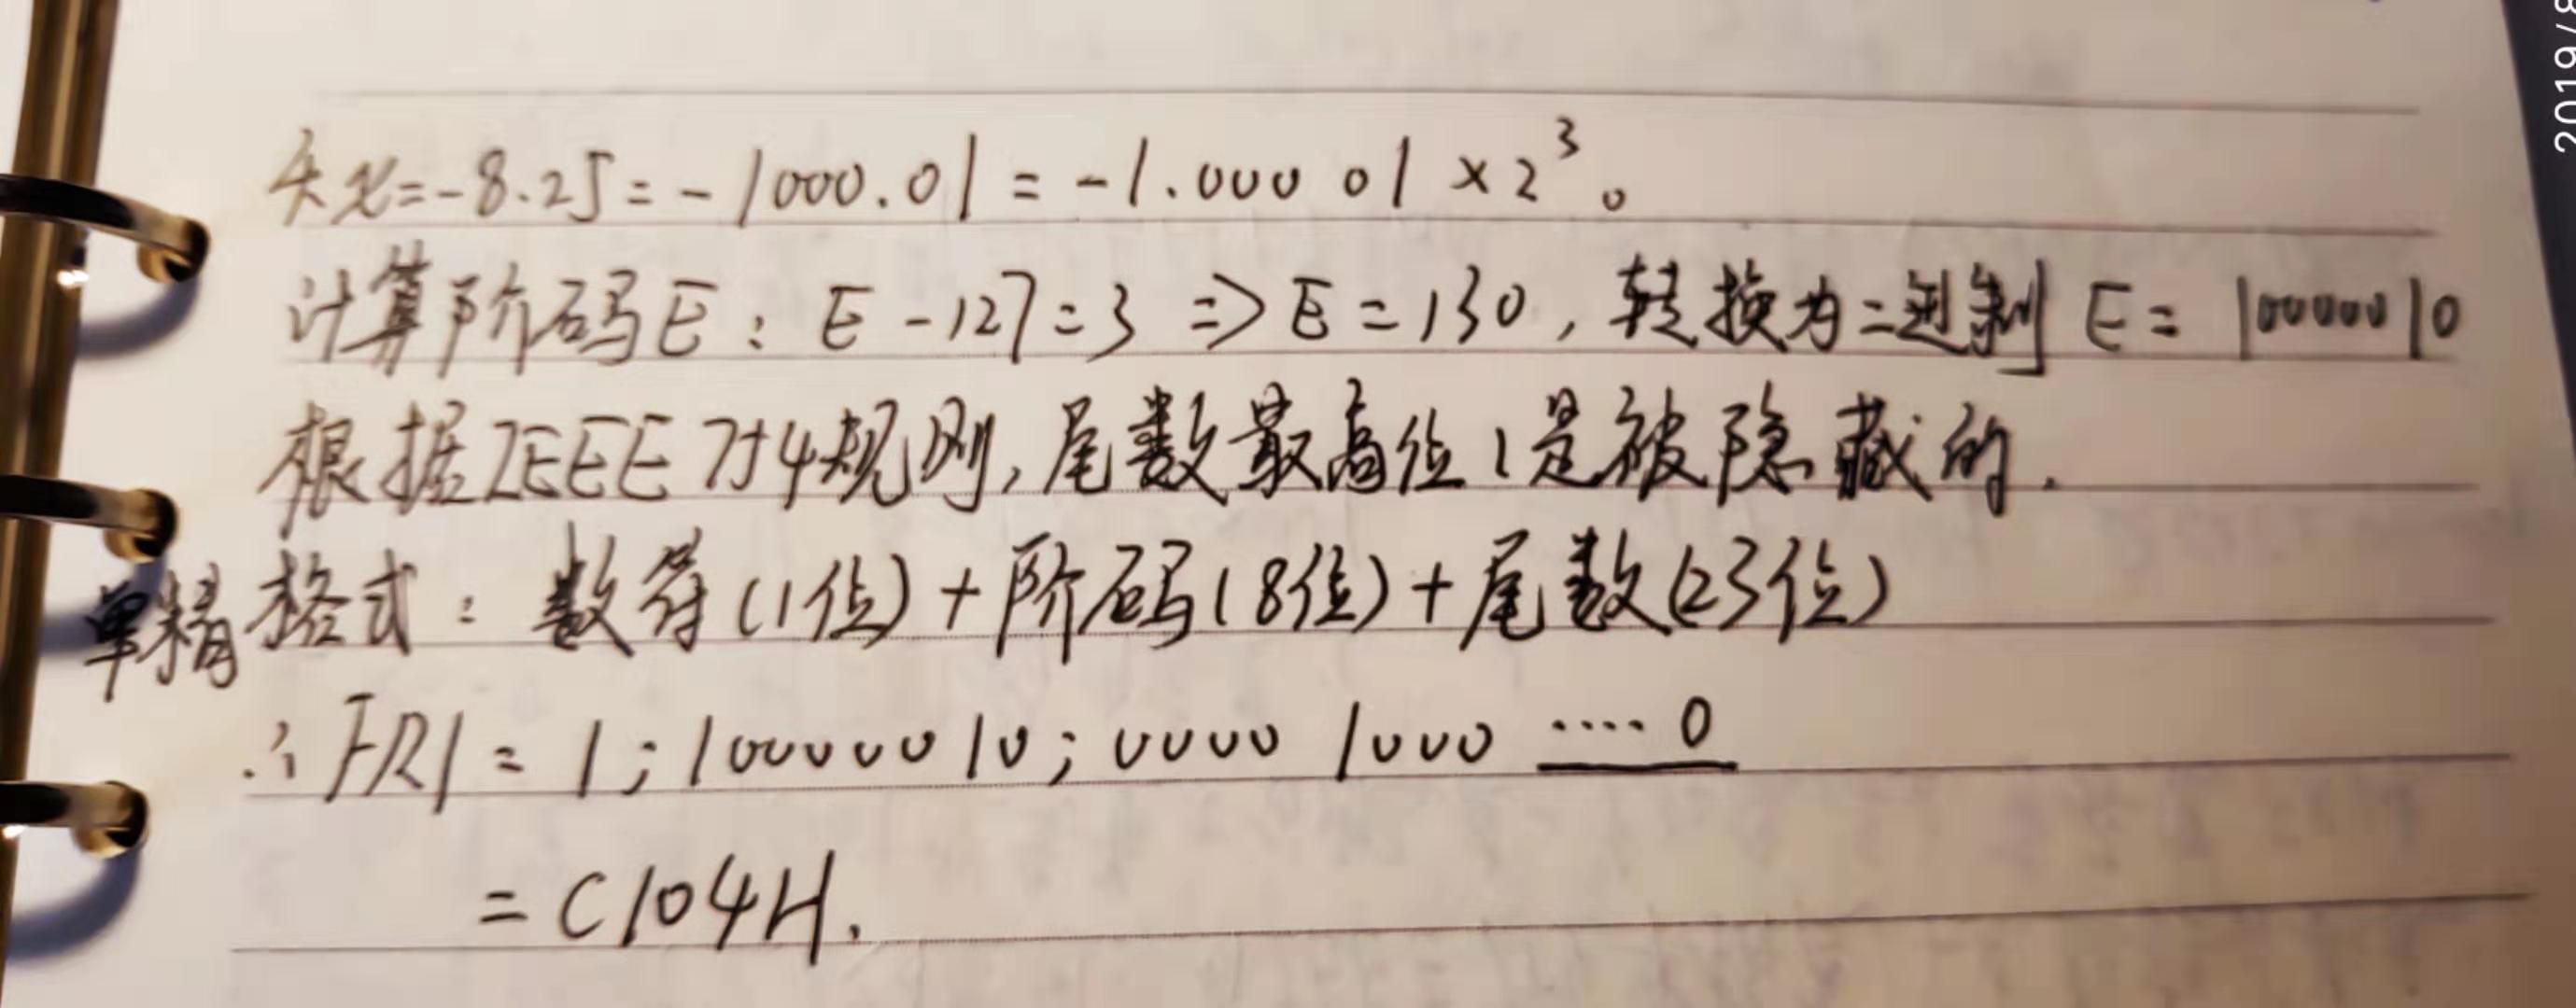 x=-8.25=-1000.01=-1.00001×2³。
计算阶码E：E-127=3⇒E=130，转换为二进制E=10000010
根据IEEE754规则，尾数最高位1是被隐藏的.
单精格式：数符(1位)+阶码(8位)+尾数(23位)
∴FR1=1;10000010;0000 1000 ····0
=C104H.
2019/8